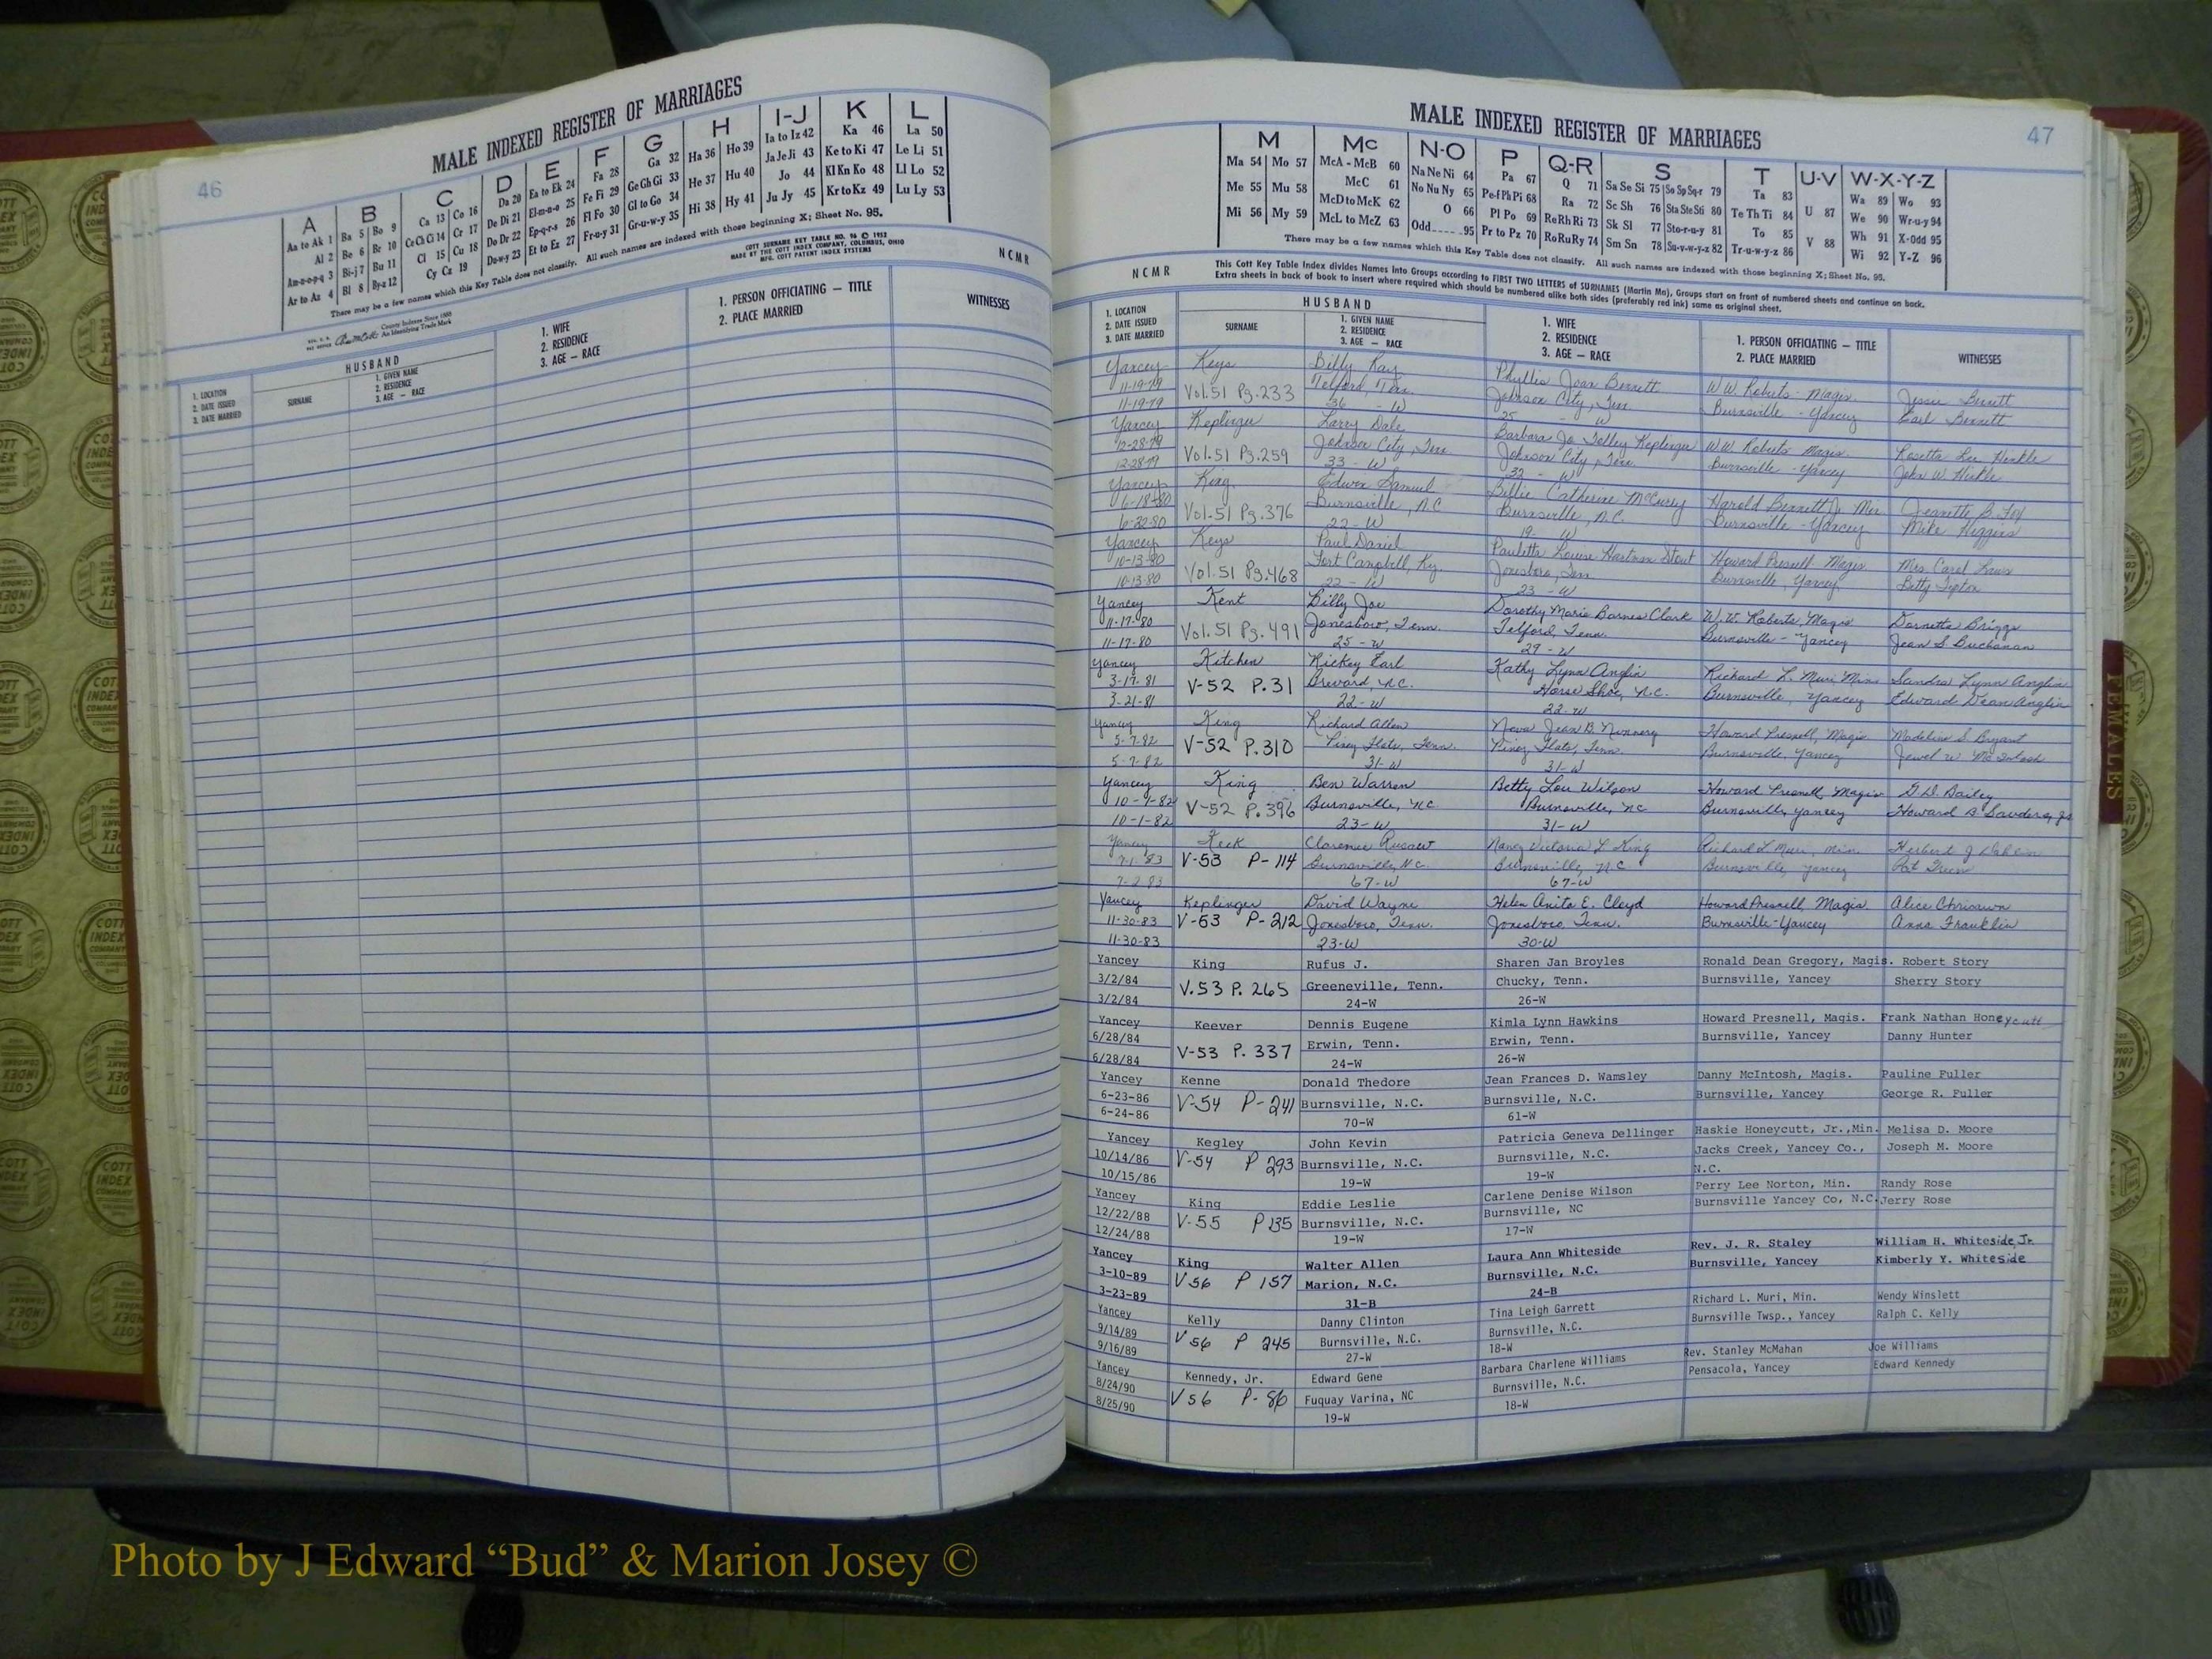 46
MALE INDEXED REGISTER OF MARRIAGES
A B C D E F G H I-J K L
Aa to Ak 1 Ba 5 Bo 9 Ca 13 Co 16 Da 20 Ea to Ek 24 Fa 28 Ga 32 Ha 36 Ho 39 Ia to Iz 42 Ka 46 La 50
Al 2 Be 6 Br 10 Ce Ch Ci 14 Cr 17 De Di 21 El-m-n-o 25 Fe Fi 29 Ge Gh Gi 33 He 37 Hu 40 Ja Je Ji 43 Ke to Ki 47 Le Li 51
Am-n-o-p-q 3 Bi-j 7 Bu 11 Cl 15 Cu 18 Do Dr 22 Ep-q-r-s 26 Fl Fo 30 Gl to Go 34 Hi 38 Hy 41 Jo 44 Kl Kn Ko 48 Ll Lo 52
Ar to Az 4 Bl 8 By-z 12 Cy Cz 19 Du-w-y 23 Et to Ez 27 Fr-u-y 31 Gr-u-w-y 35 Ju Jy 45 Kr to Kz 49 Lu Ly 53
There may be a few names which this Key Table does not classify. All such names are indexed with those beginning X; Sheet No. 95.
COTT SURNAME KEY TABLE NO. 96 © 1952
MADE BY THE COTT INDEX COMPANY, COLUMBUS, OHIO
MFG. COTT PATENT INDEX SYSTEMS
NCMR
County Indexes Since 1888
An Identifying Trade Mark
1. LOCATION
2. DATE ISSUED
3. DATE MARRIED
HUSBAND
SURNAME
1. GIVEN NAME
2. RESIDENCE
3. AGE — RACE
1. WIFE
2. RESIDENCE
3. AGE — RACE
1. PERSON OFFICIATING — TITLE
2. PLACE MARRIED
WITNESSES
47
MALE INDEXED REGISTER OF MARRIAGES
M Mc N-O P Q-R S T U-V W-X-Y-Z
Ma 54 Mo 57 McA - McB 60 Na Ne Ni 64 Pa 67 Q 71 Sa Se Si 75 So Sp Sq-r 79 Ta 83 Wa 89 Wo 93
Me 55 Mu 58 McC 61 No Nu Ny 65 Pe-f Ph Pi 68 Ra 72 Sc Sh 76 Sta Ste Sti 80 Te Th Ti 84 U 87 We 90 Wr-u-y 94
Mi 56 My 59 McD to McK 62 O 66 Pl Po 69 Re Rh Ri 73 Sk Sl 77 Sto-r-u-y 81 To 85 V 88 Wh 91 X-Odd 95
McL to McZ 63 Odd 95 Pr to Pz 70 Ro Ru Ry 74 Sm Sn 78 Su-v-w-y-z 82 Tr-u-w-y-z 86 Wi 92 Y-Z 96
There may be a few names which this Key Table does not classify. All such names are indexed with those beginning X; Sheet No. 95.
NCMR
This Cott Key Table Index divides Names into Groups according to FIRST TWO LETTERS of SURNAMES (Martin Ma), Groups start on front of numbered sheets and continue on back.
Extra sheets in back of book to insert where required which should be numbered alike both sides (preferably red ink) same as original sheet.
1. LOCATION
2. DATE ISSUED
3. DATE MARRIED
HUSBAND
SURNAME
1. GIVEN NAME
2. RESIDENCE
3. AGE — RACE
1. WIFE
2. RESIDENCE
3. AGE — RACE
1. PERSON OFFICIATING — TITLE
2. PLACE MARRIED
WITNESSES
Yancey Keys Billy Ray Phyllis Jean Bennett W.W. Roberts - Magis. Jessie Bennett
11-19-79 Vol.51 Pg.233 Telford, Ten. Johnson City, Ten. Burnsville - Yancey Earl Bennett
11-19-79 36 - W 25 - W
Yancey Keplinger Larry Dale Barbara Jo Tolley Keplinger W.W. Roberts Magis. Rosetta Lee Hinkle
12-28-79 Vol.51 Pg.259 Johnson City, Tenn Johnson City, Tenn. Burnsville - Yancey John W Hinkle
12-28-79 33 - W 32 - W
Yancey King Edwin Samuel Billie Catherine McCurry Harold Bennett Jr. Min Jeanette B. Fox
6-18-80 Vol.51 Pg.376 Burnsville, N.C Burnsville, N.C. Burnsville - Yancey Mike Higgins
6-22-80 22 - W 19 - W
Yancey Keys Paul Daniel Paulette Louise Hartman Stout Howard Presnell Magis. Mrs. Carol Laws
10-13-80 Vol.51 Pg.468 Fort Campbell, Ky. Jonesboro, Ten. Burnsville, Yancey Betty Tipton
10-13-80 22 - W 23 - W
Yancey Kent Billy Joe Dorothy Marie Barnes Clark W.W. Roberts, Magis Darnetta Briggs
11-17-80 Vol.51 Pg.491 Jonesboro, Tenn. Telford, Tenn. Burnsville - Yancey Jean S. Buchanan
11-17-80 25 - W 29 - W
Yancey Kitchen Rickey Earl Kathy Lynn Anglin Richard L. Muri Min Sandra Lynn Anglin
3-17-81 V-52 P.31 Brevard, N.C. Horse Shoe, N.C. Burnsville, Yancey Edward Dean Anglin
3-21-81 22-W 22-W
Yancey King Richard Allen Nova Jean B. Nunnery Howard Presnell, Magis Madeline S. Bryant
5-7-82 V-52 P.310 Piney Flats, Tenn. Piney Flats, Tenn. Burnsville, Yancey Jewel W. McIntosh
5-7-82 31-W 31-W
Yancey King Ben Warren Betty Lou Wilson Howard Presnell, Magis G.D. Bailey
10-1-82 V-52 P.396 Burnsville, NC Burnsville, NC Burnsville, Yancey Howard D. Sauders, Jr
10-1-82 23-W 31-W
Yancey Keck Clarence Nancy Victoria L King Richard L Muri, Min Herbert J
7-1-83 V-53 P-114 Burnsville, N.C. Burnsville, N.C. Burnsville, Yancey Pat
7-2-83 67-W 67-W
Yancey Keplinger David Wayne Helen Anita E. Cloyd Howard Presnell, Magis. Alice Chrisawn
11-30-83 V-53 P-212 Jonesboro, Tenn. Jonesboro, Tenn. Burnsville-Yancey Anna Franklin
11-30-83 23-W 30-W
Yancey King Rufus J. Sharen Jan Broyles Ronald Dean Gregory, Magis. Robert Story
3/2/84 V.53 P. 265 Greeneville, Tenn. Chucky, Tenn. Burnsville, Yancey Sherry Story
3/2/84 24-W 26-W
Yancey Keever Dennis Eugene Kimla Lynn Hawkins Howard Presnell, Magis. Frank Nathan Honeycutt
6/28/84 V-53 P. 337 Erwin, Tenn. Erwin, Tenn. Burnsville, Yancey Danny Hunter
6/28/84 24-W 26-W
Yancey Kenne Donald Thedore Jean Frances D. Wamsley Danny McIntosh, Magis. Pauline Fuller
6-23-86 V-54 P-241 Burnsville, N.C. Burnsville, N.C. Burnsville, Yancey George R. Fuller
6-24-86 70-W 61-W
Yancey Kegley John Kevin Patricia Geneva Dellinger Haskie Honeycutt, Jr.,Min. Melisa D. Moore
10/14/86 V-54 P 293 Burnsville, N.C. Burnsville, N.C. Jacks Creek, Yancey Co., Joseph M. Moore
10/15/86 19-W 19-W N.C.
Yancey King Eddie Leslie Carlene Denise Wilson Perry Lee Norton, Min. Randy Rose
12/22/88 V-55 P 135 Burnsville, N.C. Burnsville, NC Burnsville Yancey Co, N.C. Jerry Rose
12/24/88 19-W 17-W
Yancey King Walter Allen Laura Ann Whiteside Rev. J. R. Staley William H. Whiteside, Jr.
3-10-89 V 56 P 157 Marion, N.C. Burnsville, N.C. Burnsville, Yancey Kimberly Y. Whiteside
3-23-89 31-B 24-B
Yancey Kelly Danny Clinton Tina Leigh Garrett Richard L. Muri, Min. Wendy Winslett
9/14/89 V 56 P 245 Burnsville, N.C. Burnsville, N.C. Burnsville Twsp., Yancey Ralph C. Kelly
9/16/89 27-W 18-W
Yancey Kennedy, Jr. Edward Gene Barbara Charlene Williams Rev. Stanley McMahan Joe Williams
8/24/90 V 56 P-86 Fuquay Varina, NC Burnsville, N.C. Pensacola, Yancey Edward Kennedy
8/25/90 19-W 18-W
FEMALES
Photo by J Edward “Bud” & Marion Josey ©